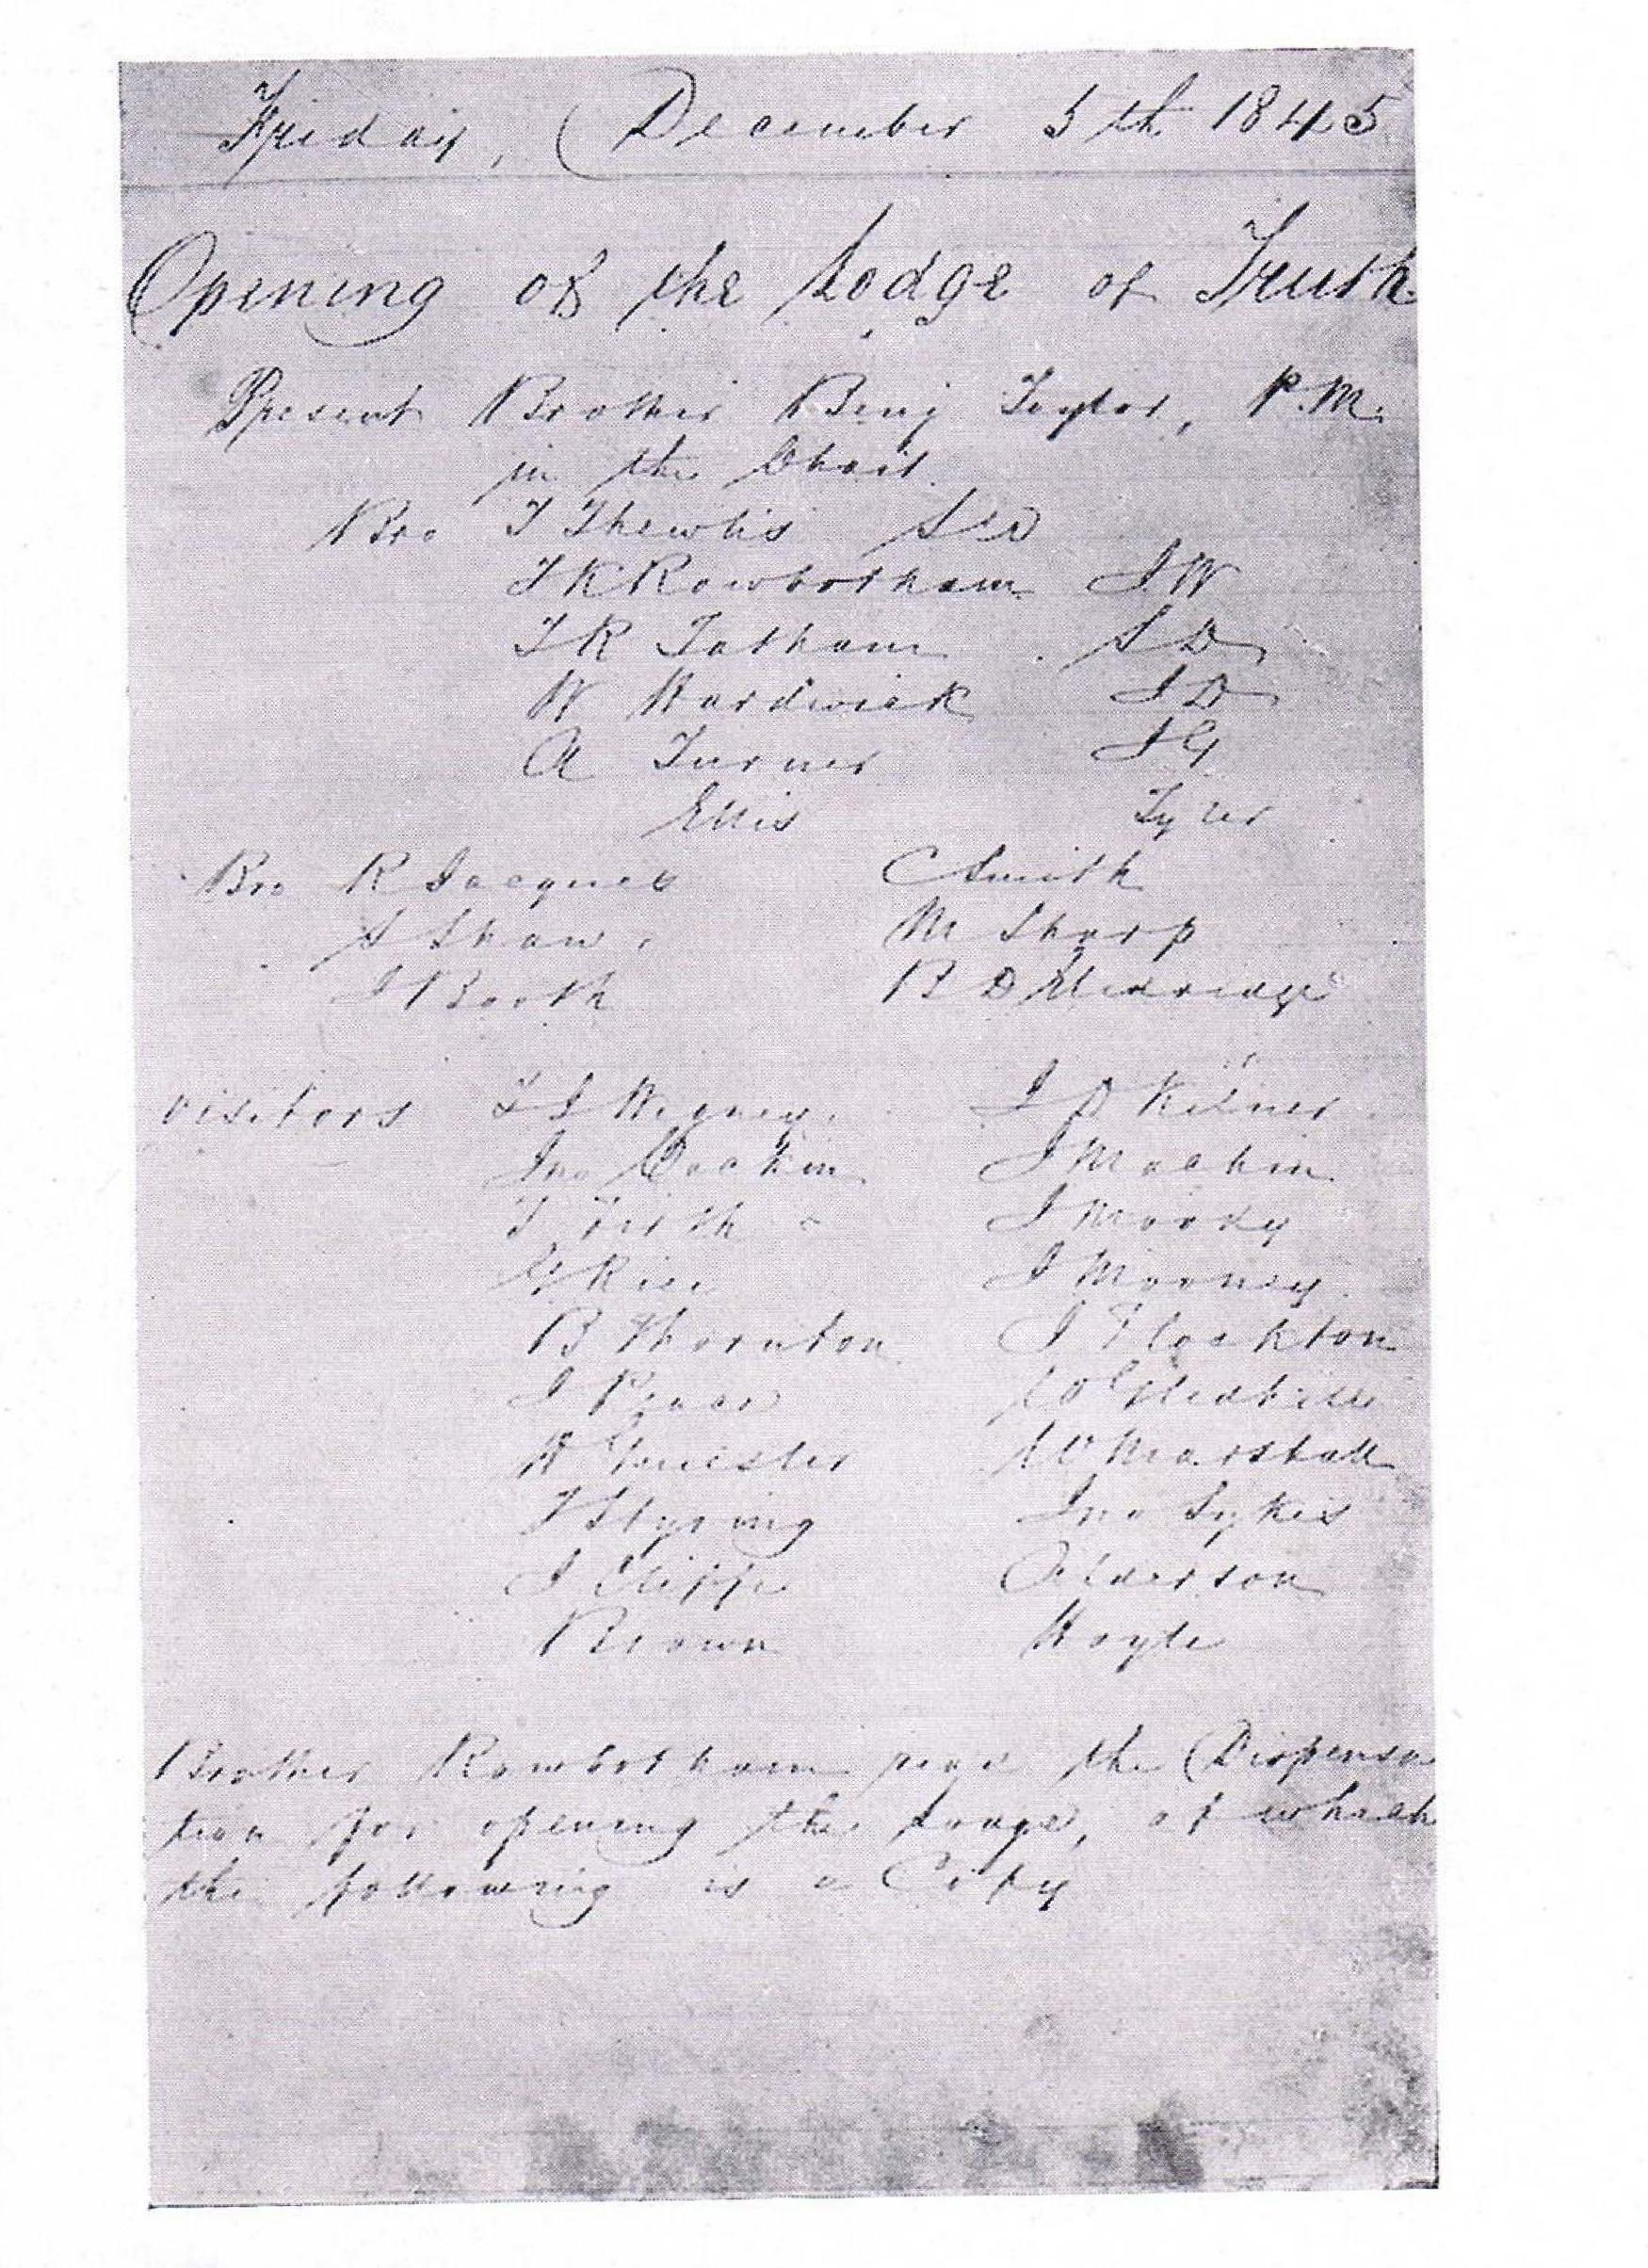 Friday, December 5th 1845
Opening of the Lodge of Truth
Present Brother Benj Taylor, P.M.
in the Chair.
Bro T Thewlis SW
T K Rowbotham JW
T R Tatham SD
W Hardwick JD
A Turner IG
Ellis Tyler
Bro R Jacques C Smith
S Shaw, M Sharp
J Booth B D
visitors T J Wigney, J D Kilner
Jno Dockin J Machin
T Firth J Moody
G Rice J Mooney
B Thornton J Flockton
J
W W Marshall
T Styring Jno Sykes
J Alderson
Brown Hoyle
Brother Rowbotham read the Dispensa
tion for opening the Lodge, of which
the following is a Copy